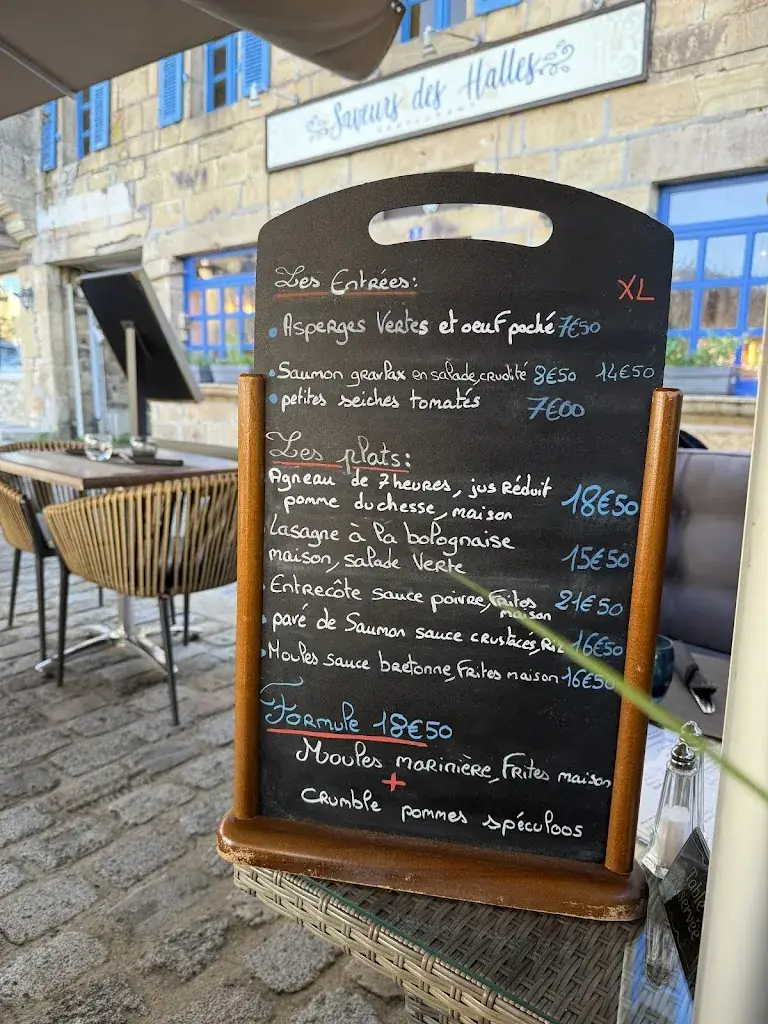 Saveurs des Halles
RESTAURANT
Les Entrées:
XL
Asperges Vertes et oeuf poché 7€50
Saumon gravlax en salade, crudité 8€50 14€50
petites seiches tomatés 7€00
Les plats:
Agneau de 7 heures, jus Réduit
pomme duchesse, maison 18€50
Lasagne à la bolognaise
maison, salade Verte 15€50
Entrecôte sauce poivre, Frites maison 21€50
pavé de Saumon sauce crustacés, Riz 16€50
Moules sauce bretonne, Frites maison 16€50
Formule 18€50
Moules marinière, Frites maison
+
Crumble pommes spéculoos
Table
Réservée